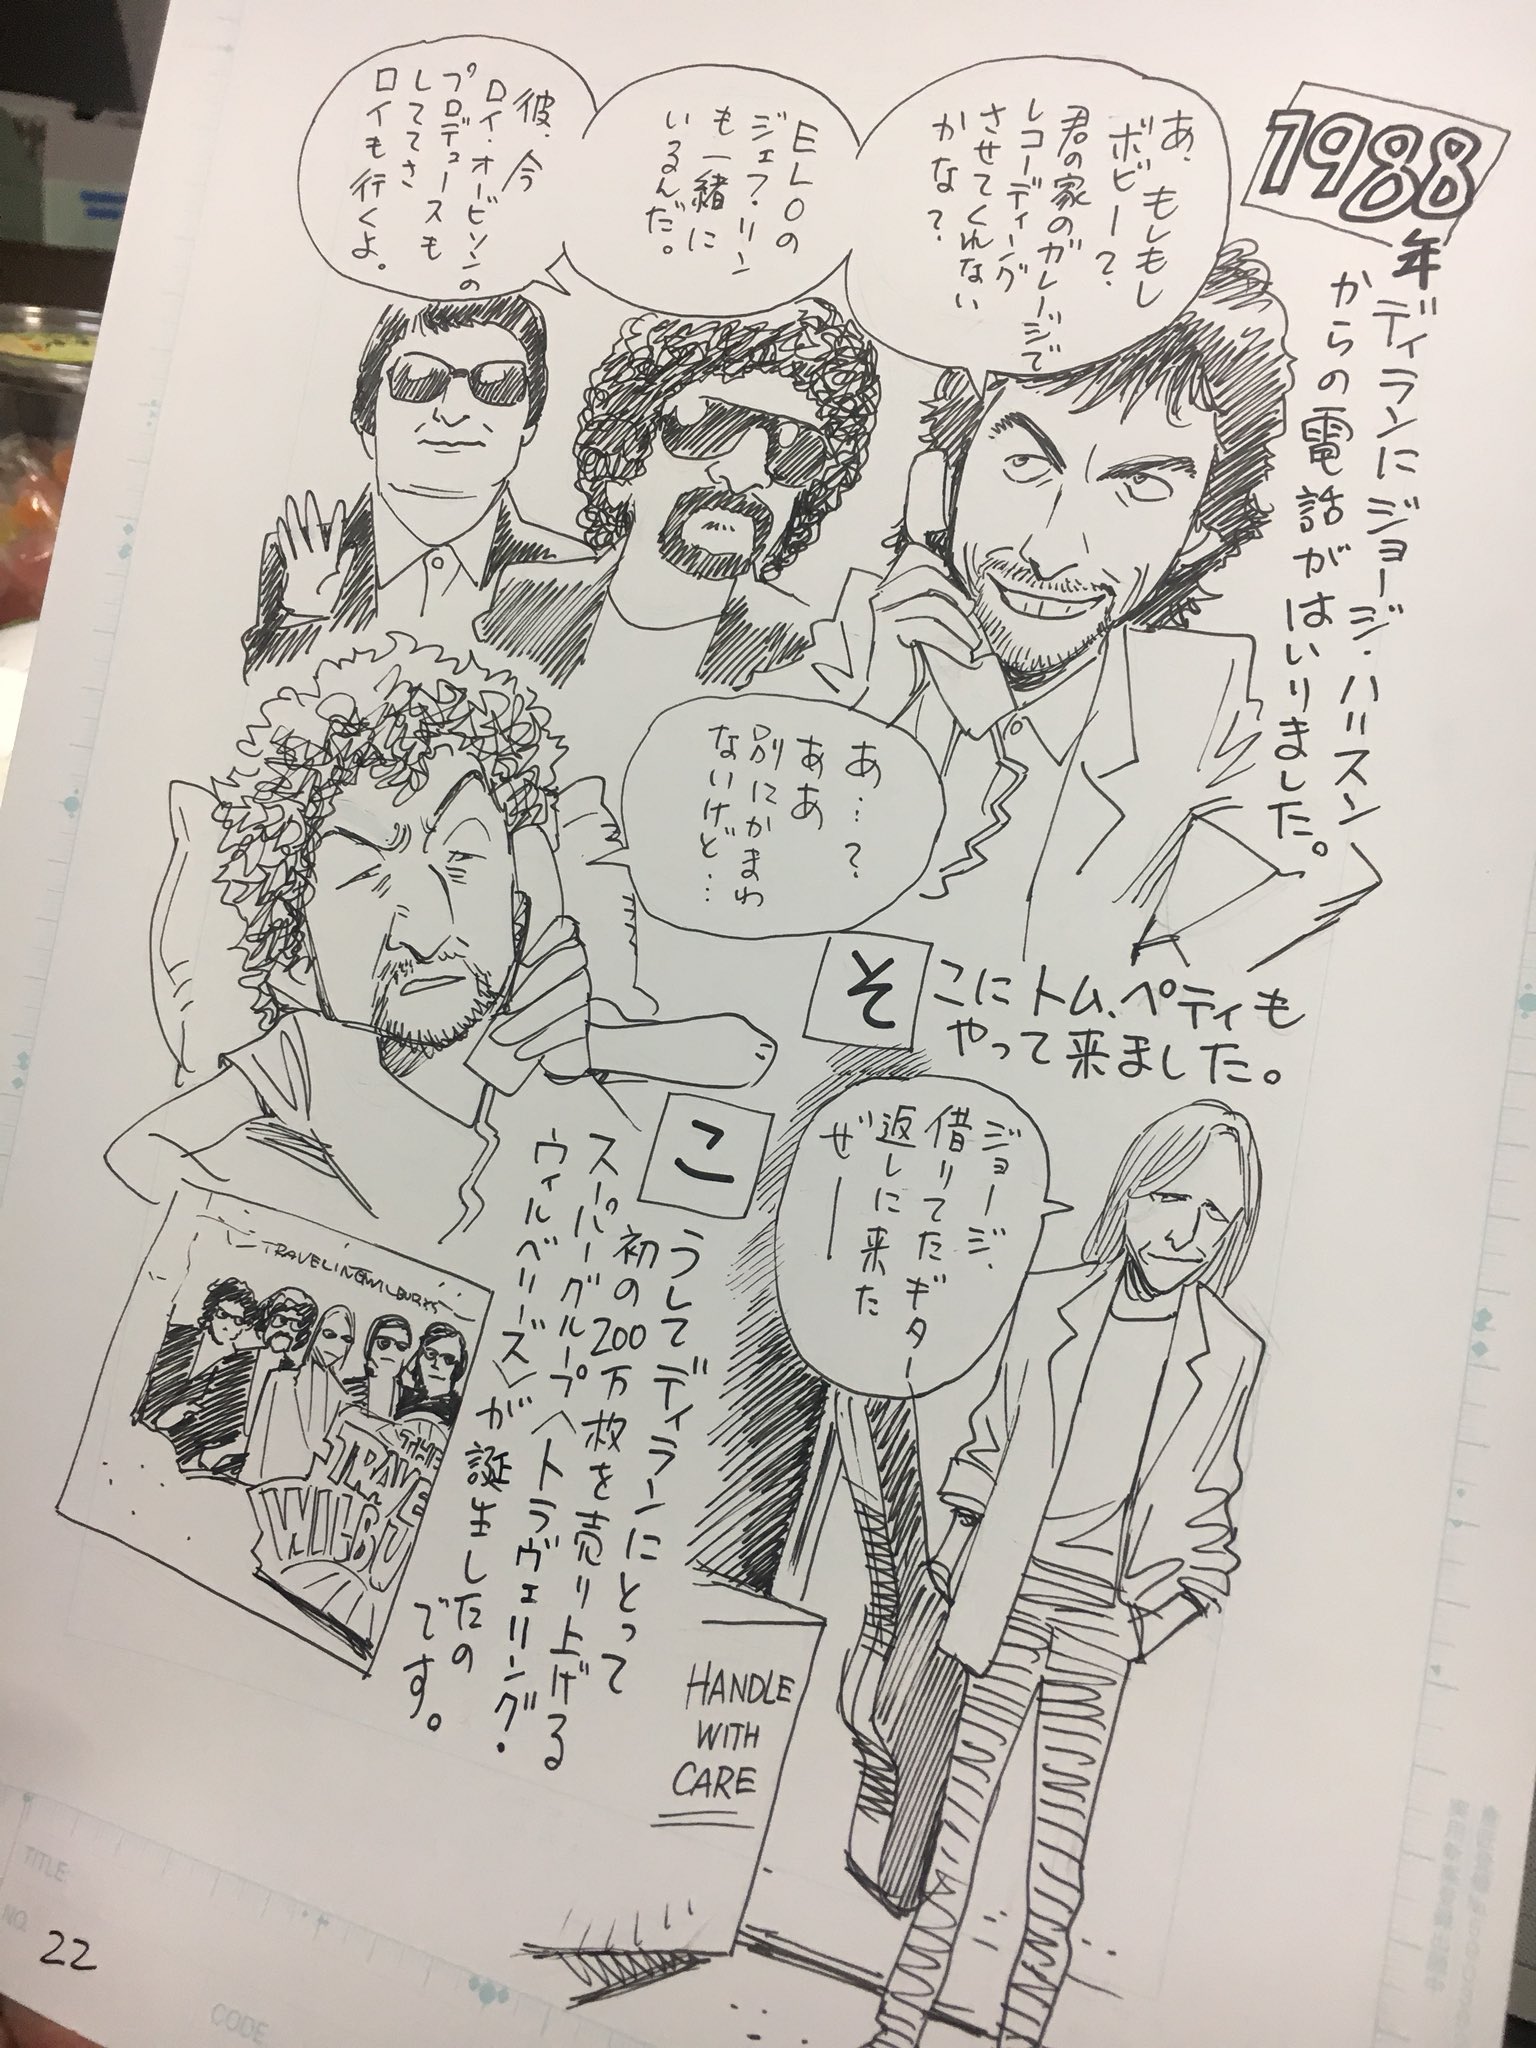 1988年ディランにジョージ・ハリスン
からの電話がはいりました。
あ、もしもし
ボビー?
君の家のガレージで
レコーディング
させてくれない
かな?
ELOの
ジェフ・リン
も一緒に
いるんだ。
彼、今
ロイ・オービソンの
プロデュースも
しててさ
ロイも行くよ。
あ…?
ああ
別にかまわ
ないけど…
そこにトム、ペティも
やって来ました。
ジョージ、
借りてたギター
返しに来た
ぜー
こうしてディランにとって
初の200万枚を売り上げる
スーパーグループ〈トラヴェリング・
ウィルベリーズ〉が誕生したの
です。
HANDLE
WITH
CARE
TRAVELINGWILBURYS
THE
TRAVE
WILBU
TITLE
NO.
22
CODE